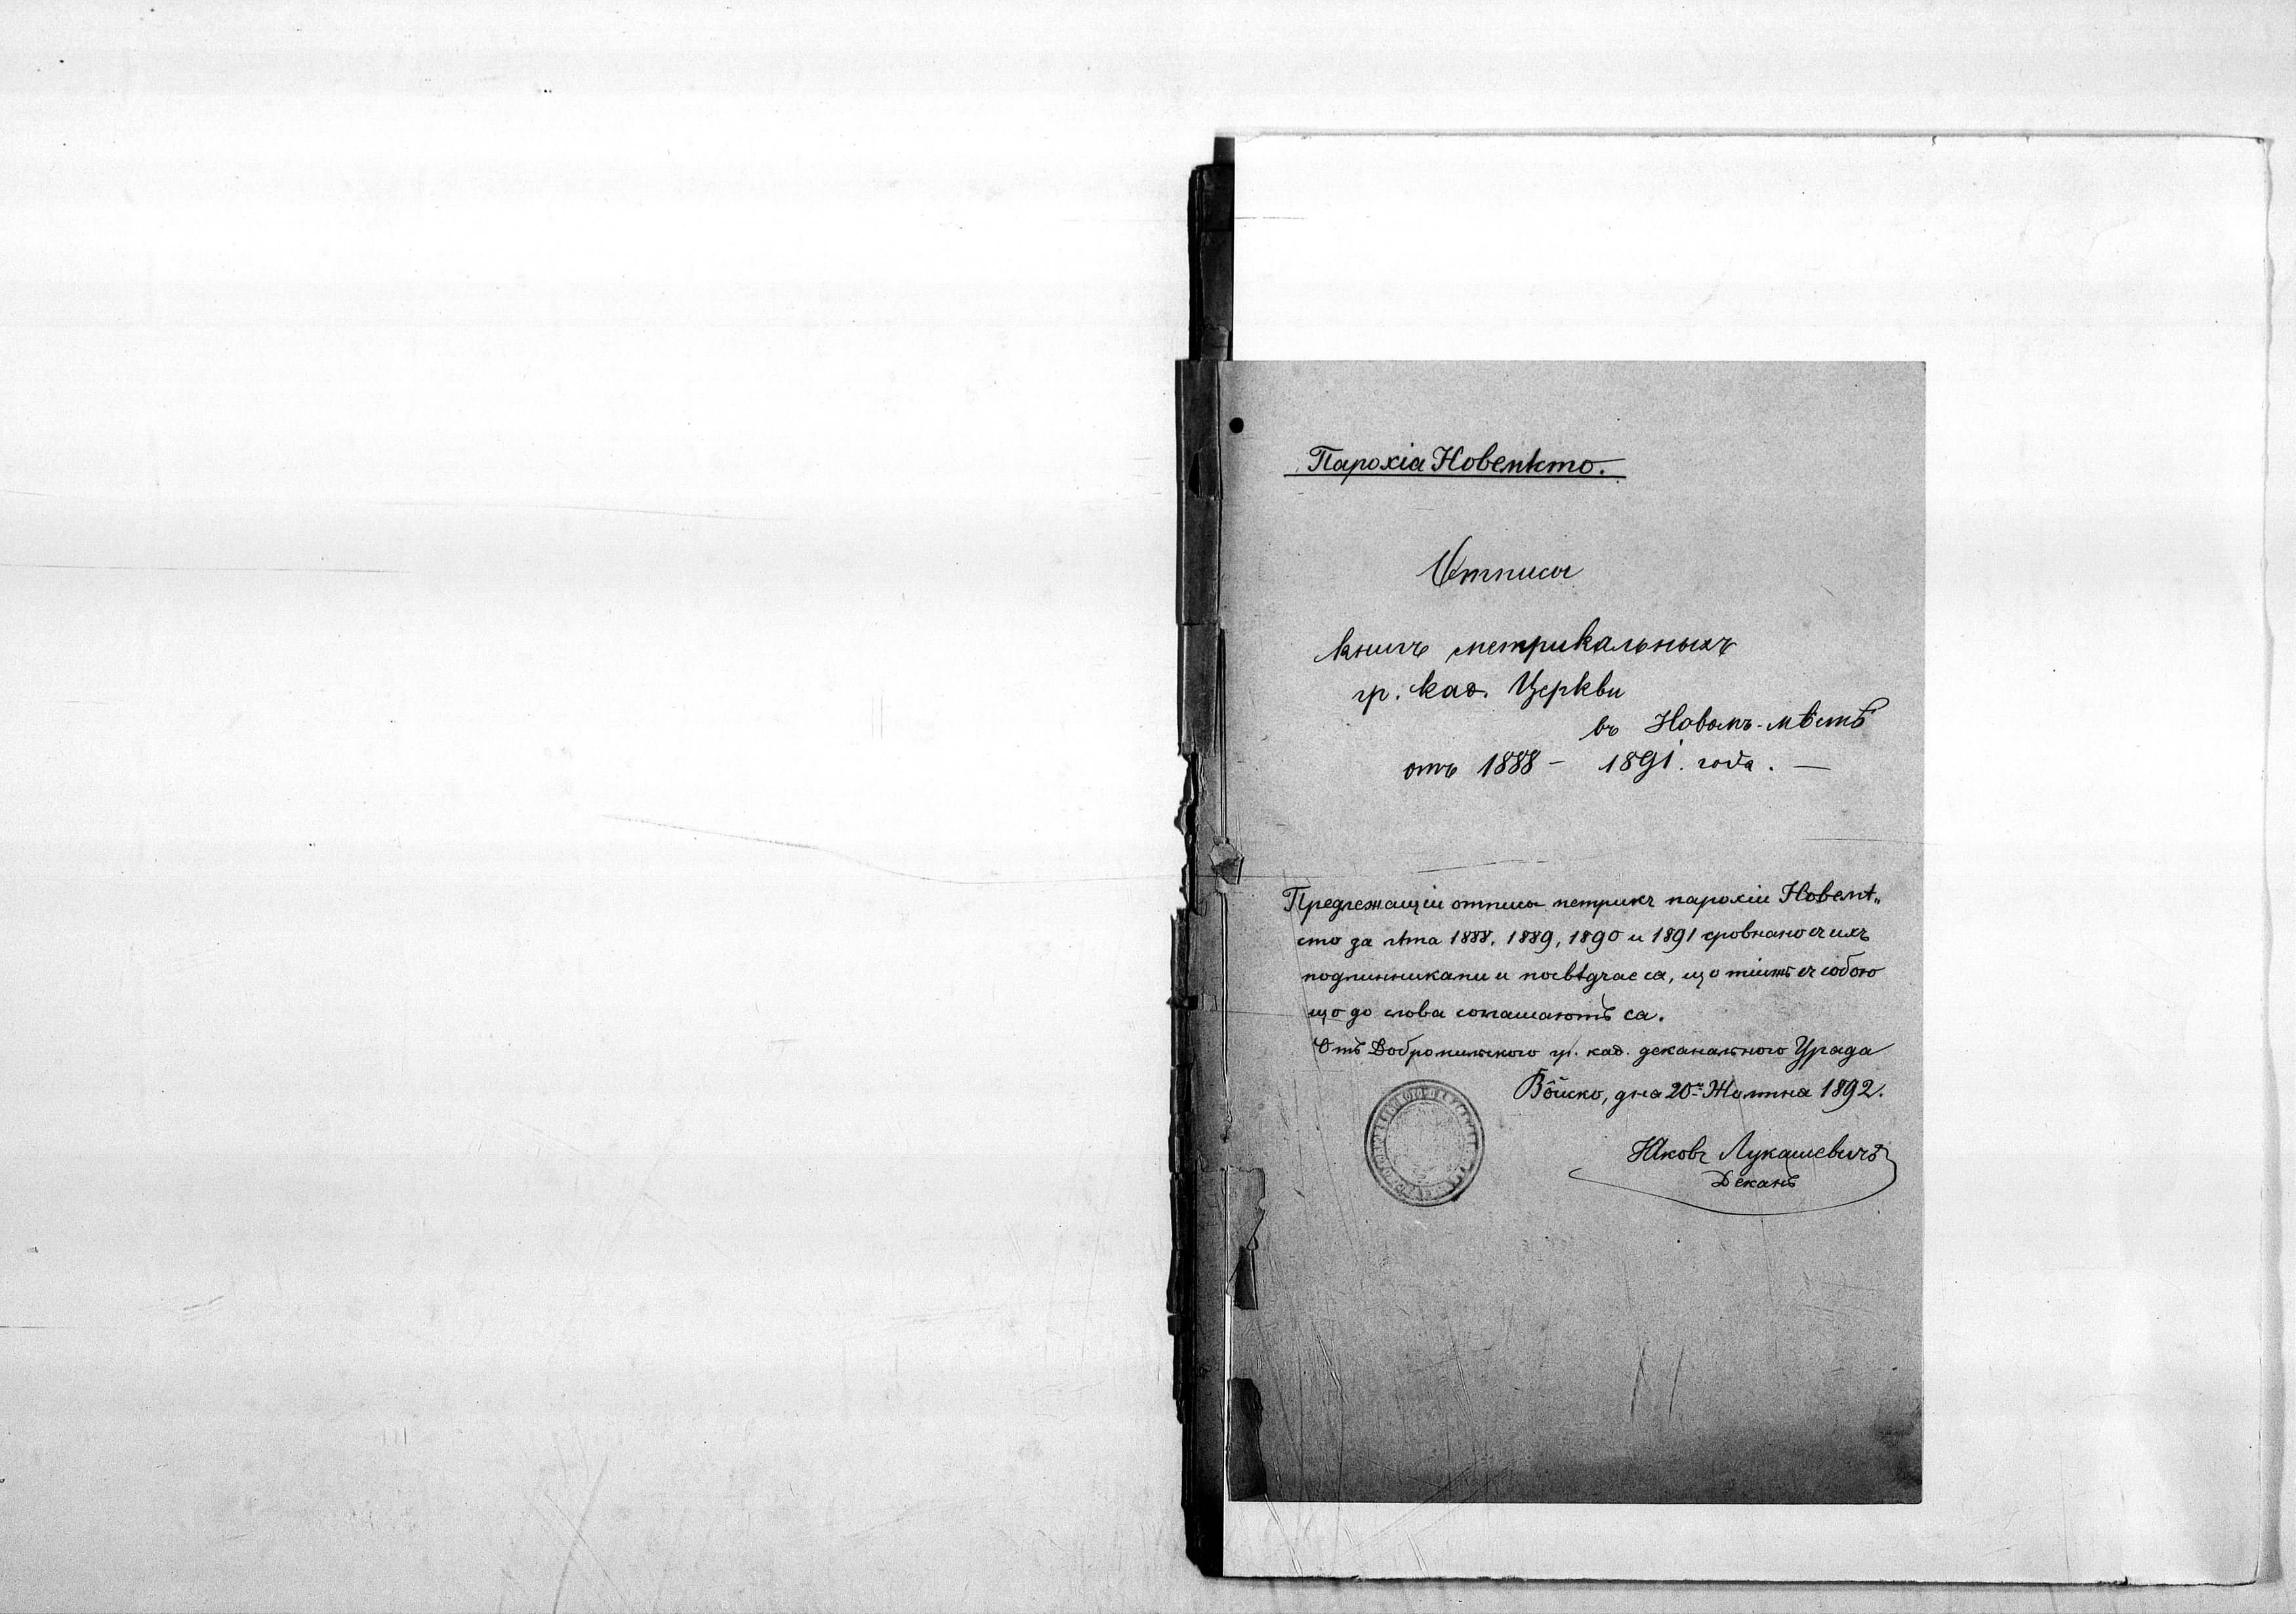 Парохіа Новемѣсто.
Отписы
книгъ метрикальныхъ
гр. каѳ. Церкви
въ Новомъ-мѣстѣ
отъ 1888 – 1891. года. —
Предлежащіи отписы метрикъ парохіи Новемѣ„
сто за лѣта 1888, 1889, 1890 и 1891 сровнано съ ихъ
подлинниками и посвѣдчае са, що тіижъ съ собою
що до слова соглашаютъ са.
Отъ Добромильского гр. каѳ. деканального Урада
Во̂йско, дна 20. Жолтна 1892.
Яковъ Лукашевичъ
Деканъ